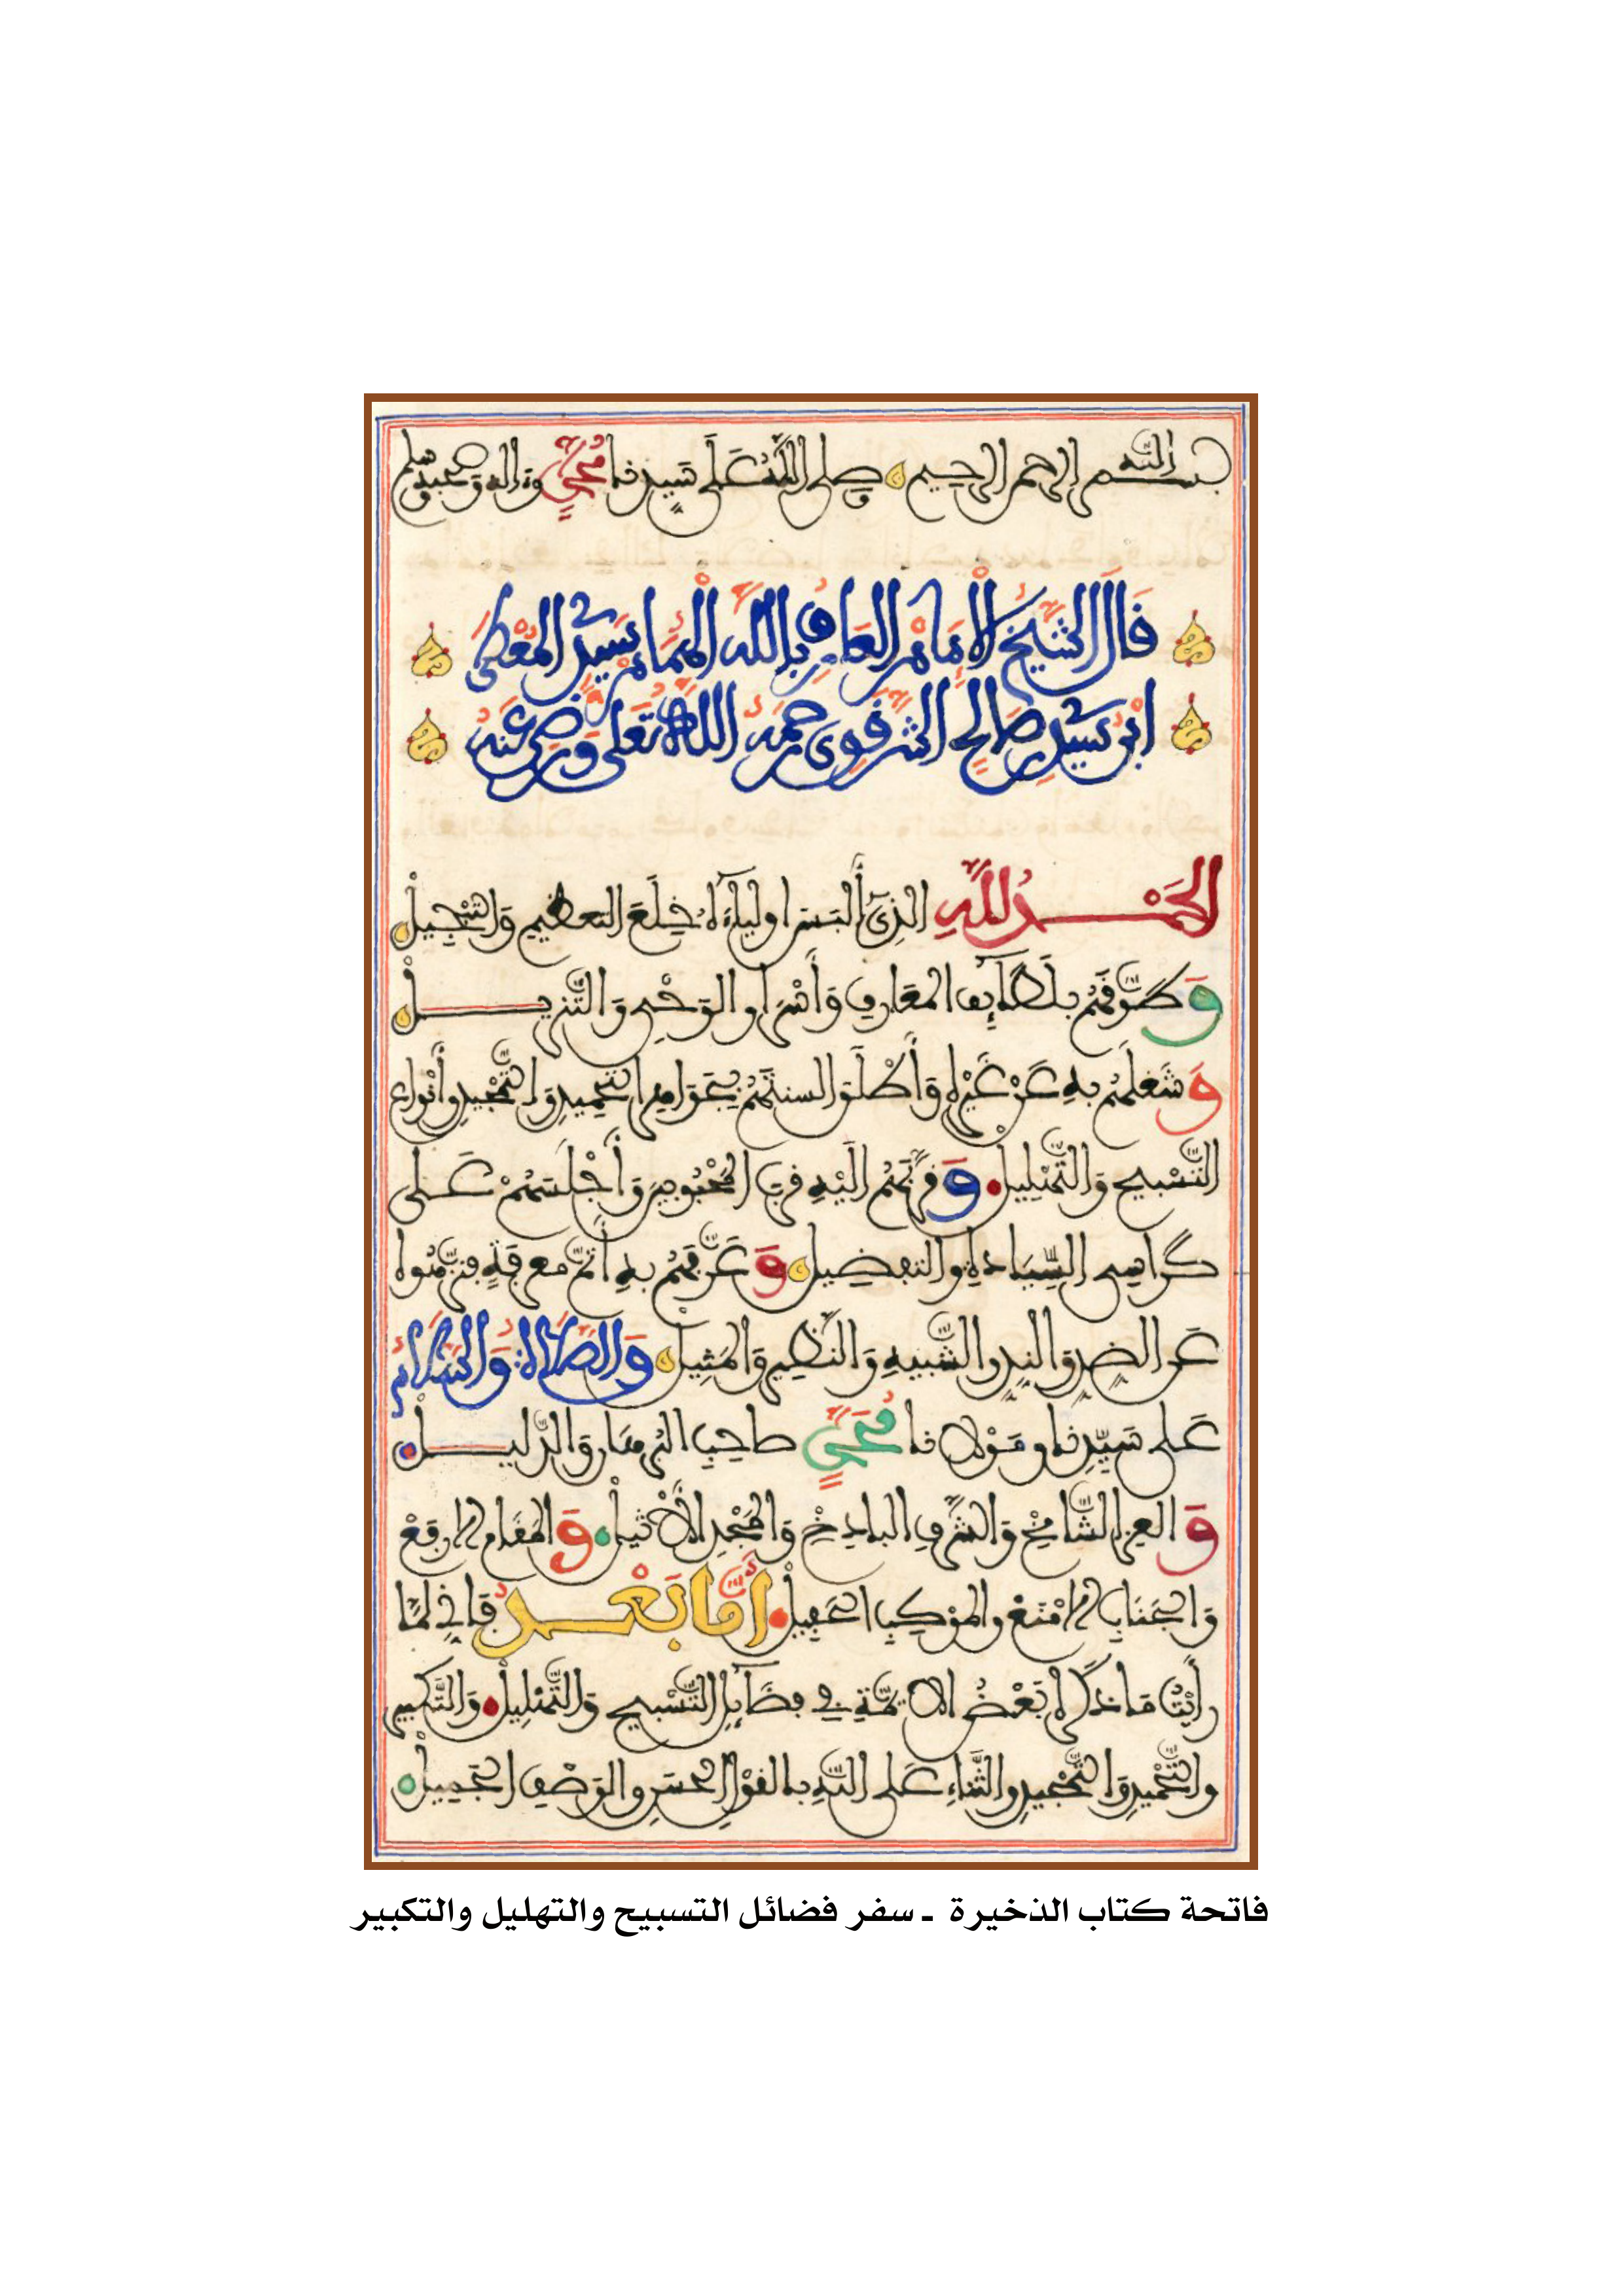 بسم الله الرحمن الرحيم وصلى الله على سيدنا محمد وءاله وصحبه وسلم
قَالَ الشَّيْخُ الْإِمَامُ الْعَارِفُ بِاللَّهِ الْهُمَامُ سَيِّدِي الْمُعْطَى
ابْنُ سَيِّدِي صَالِحٍ الشَّرْقَوِي رَحِمَهُ اللَّهُ تَعَلَى وَرَضِيَ عَنْهُ
الْحَمْدُ لِلَّهِ الَّذِي أَلْبَسَ أَوْلِيَاءَهُ خِلَعَ التَّعْظِيمِ وَالتَّبْجِيلْ
وَطَوَّقَهُمْ بِلَطَائِفِ الْمَعَارِفِ وَأَسْرَارِ الْوَحْيِ وَالتَّنْزِيلْ
وَشَغَلَهُمْ بِهِ عَنْ غَيْرِهِ وَأَطْلَقَ أَلْسِنَتَهُمْ بِجَوَامِعِ التَّحْمِيدِ وَالتَّمْجِيدِ وَأَنْوَاعِ
التَّسْبِيحِ وَالتَّهْلِيلْ وَقَرَّبَهُمْ إِلَيْهِ قُرْبَ الْمَحْبُوبِينَ وَأَجْلَسَهُمْ عَلَى
كَرَاسِي السِّيَادَةِ وَالتَّفْضِيلْ وَعَرَّفَهُمْ بِهِ أَتَمَّ مَعْرِفَةٍ فَنَزَّهُوهُ
عَنِ الضِّدِّ وَالنِّدِّ وَالشَّبِيهِ وَالنَّظِيرِ وَالْمَثِيلْ وَالصَّلَاةُ وَالسَّلَامُ
عَلَى سَيِّدِنَا وَمَوْلَانَا مُحَمَّدٍ صَاحِبِ الْبُرْهَانِ وَالدَّلِيلْ
وَالْعِزِّ الشَّامِخِ وَالشَّرَفِ الْبَاذِخِ وَالْمَجْدِ الْأَثِيلْ وَالْمَقَامِ الْأَرْفَعْ
وَالْجَنَابِ الْأَمْنَعْ وَالْمَوْكِبِ الْحَفِيلْ أَمَّا بَعْدُ فَإِنِّي لَمَّا
رَأَيْتُ مَا ذَكَرَهُ بَعْضُ الْأَئِمَّةِ فِي فَضَائِلِ التَّسْبِيحِ وَالتَّهْلِيلْ وَالتَّكْبِيرِ
وَالتَّحْمِيدِ وَالتَّمْجِيدِ وَالثَّنَاءِ عَلَى اللَّهِ بِالْقَوْلِ الْحَسَنِ وَالْوَصْفِ الْجَمِيلْ
فاتحة كتاب الذخيرة ـ سفر فضائل التسبيح والتهليل والتكبير